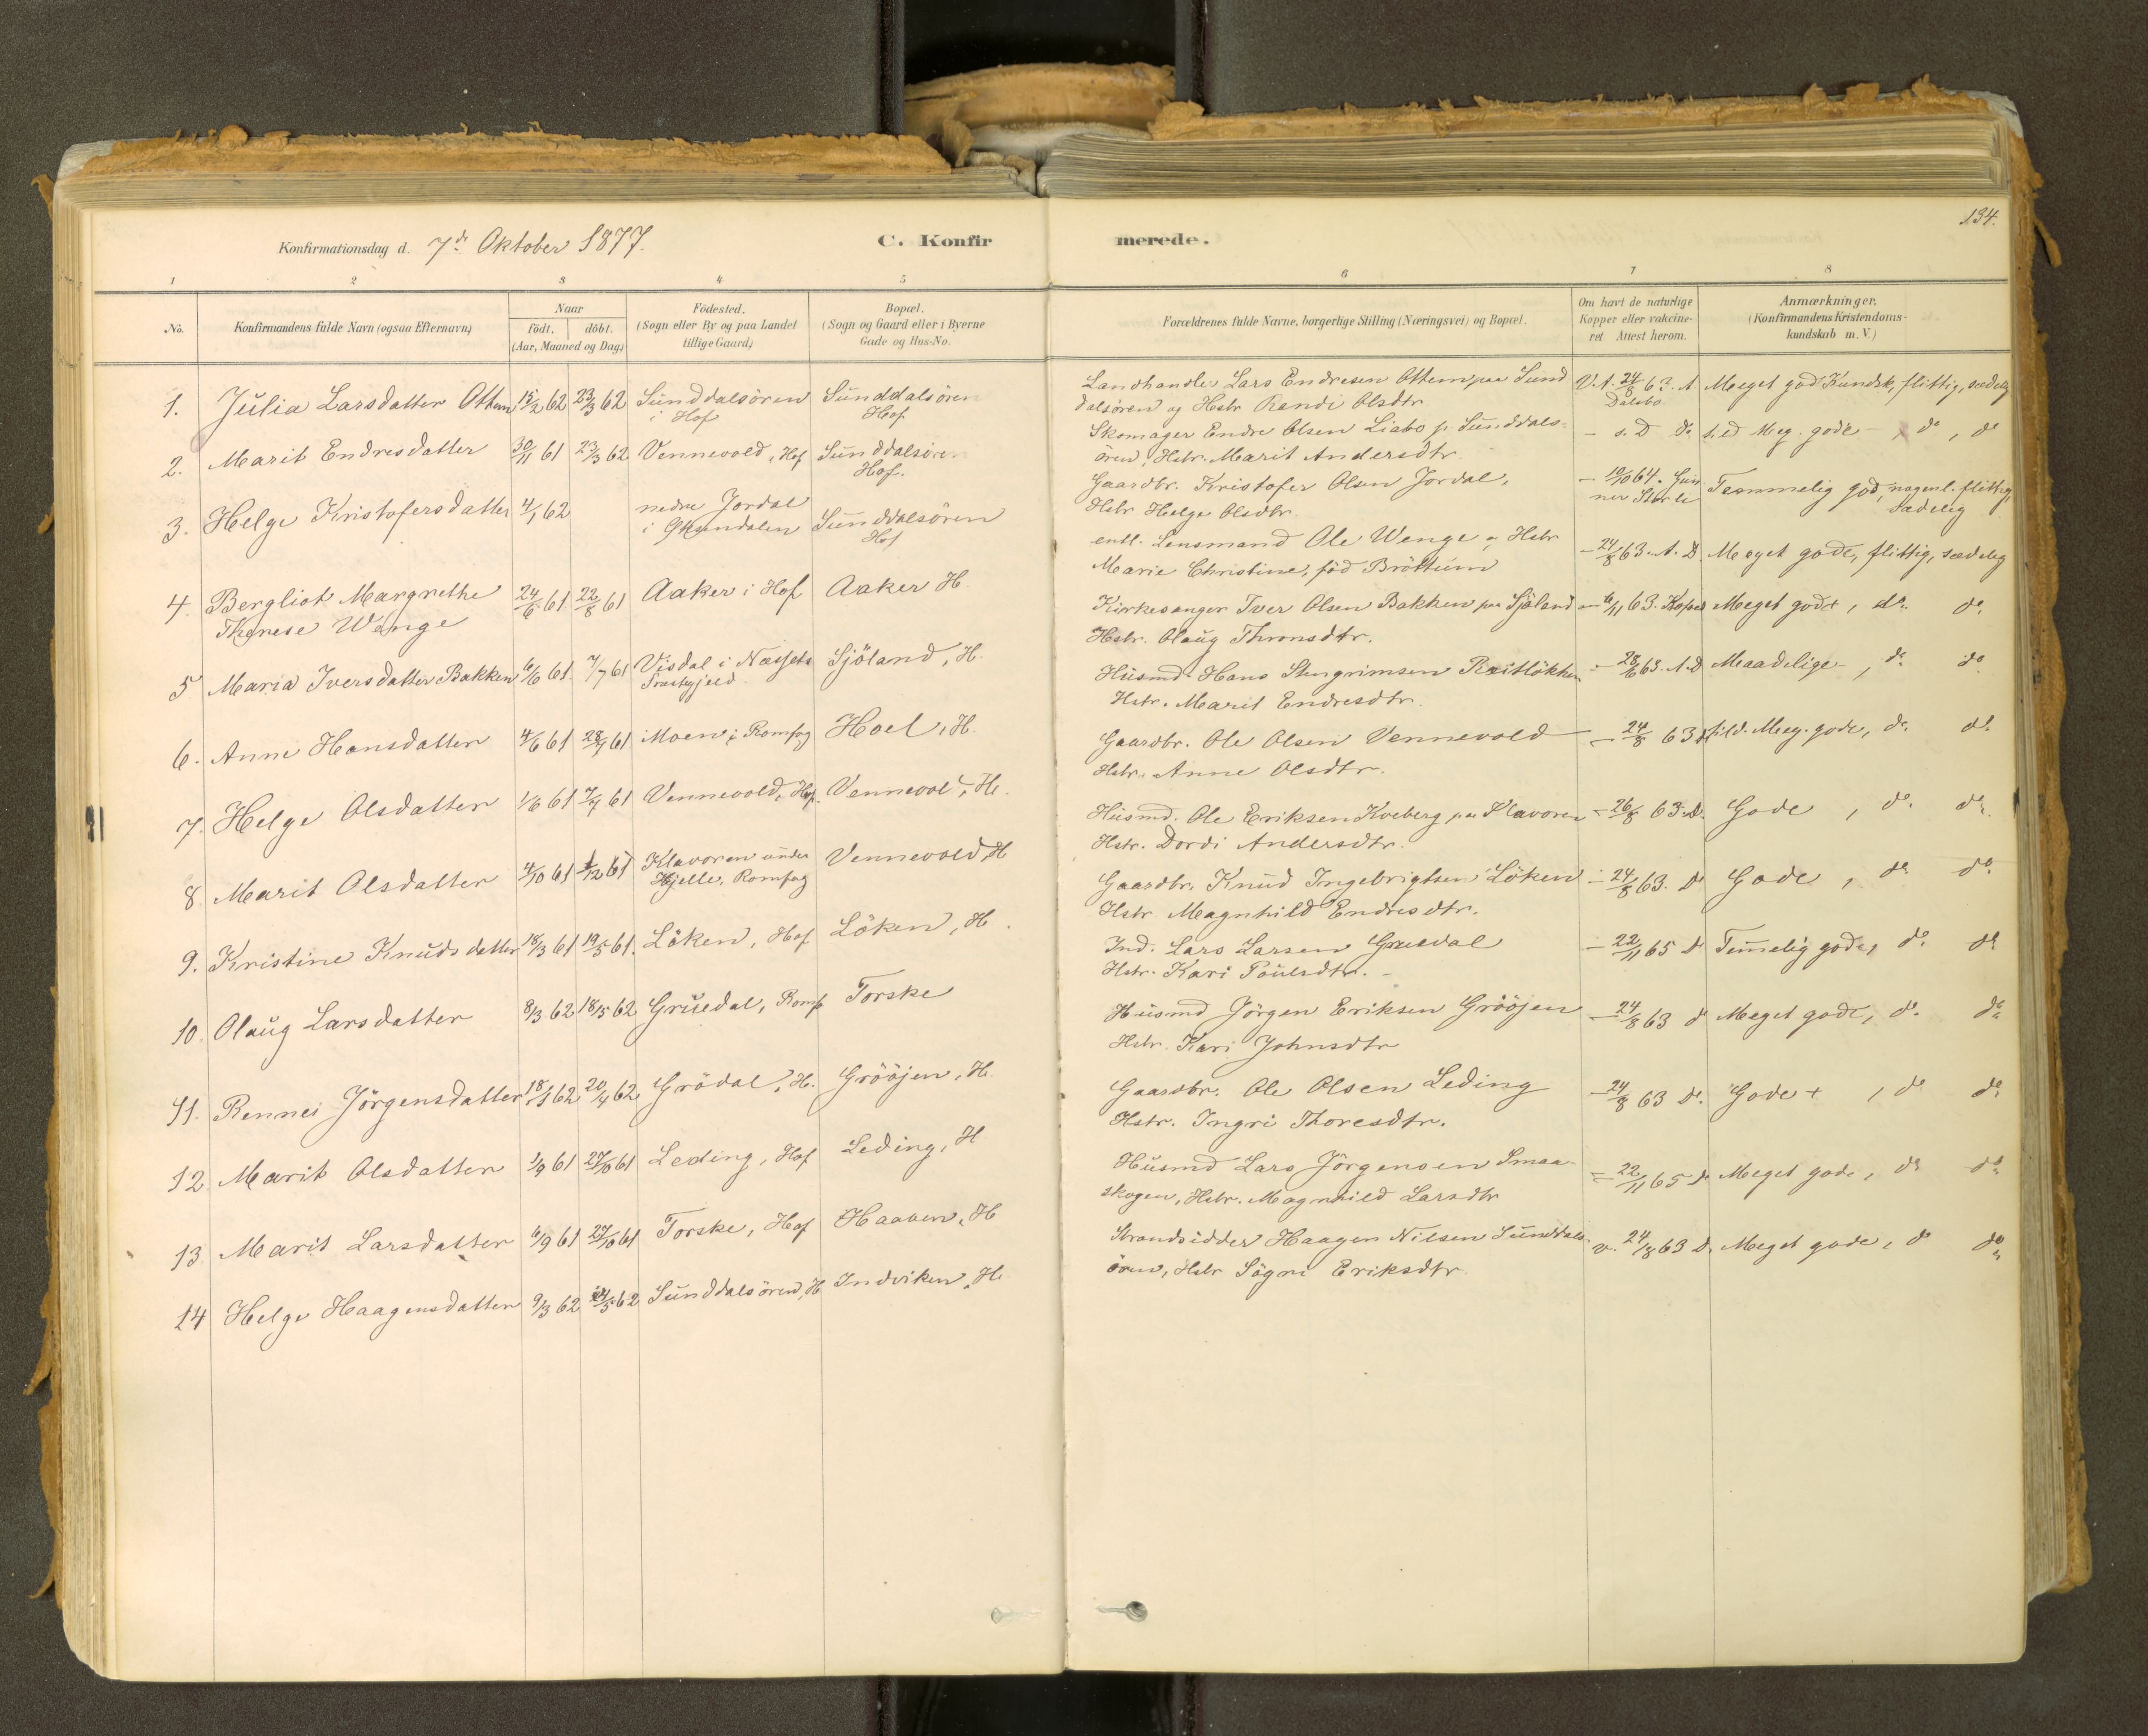 134.
Konfirmationsdag d. 7de Oktober 1877.
C. Konfirmerede.
1 2 3 4 5 6 7 8
No. Konfirmandens fulde Navn (ogsaa Efternavn) Naar födt. döbt. (Aar, Maaned og Dag) Födested. (Sogn eller By og paa Landet tillige Gaard) Bopæl. (Sogn og Gaard eller i Byerne Gade og Hus-No.
Forældrenes fulde Navne, borgerlige Stilling (Næringsvei) og Bopæl. Om havt de naturlige Kopper eller vakcineret Attest herom. Anmærkninger. (Konfirmandens Kristendomskundskab m. V.)
1. Julia Larsdatter Ottem 15/2 62 23/3 62 Sunddalsören i Hof Sunddalsören Hof
Landhandler Lars Endresen Ottem paa Sund
dalsören og Hstr Randi Olsdtr V.A. 24/8 63. A Dalebo Meeget god Kundsk, flittig, sædelig
2. Marit Endresdatter 30/11 61 23/3 62 Vennevold, Hof Sunddalsören Hof.
Skomager Endre Olsen Liabo p. Sunddals-
ören, Hstr. Marit Andersdtr. Meg. gode do, do
3. Helge Kristofersdatter 4/1 62 nedre Jordal i Öksendalen Sunddalsören Hof
Gaardbr. Kristofer Olsen Jordal,
Hstr Helge Olsdtr. 19/10 64. Temmelig god, nogenl. flittig, sædelig
4. Bergliot Margrethe Therese Wenge 24/6 61 22/8 61 Aaker i Hof Aaker H.
entl. Lensmand Ole Wenge og Hstr
Marie Christine, föd Bröttum 24/8 63. A. D Meget gode, flittig, sædelig
5 Maria Iversdatter Bakken 6/6 61. 7/7 61 Visdal i Næssets Præstgjeld Sjöland, H.
Kirkesanger Iver Olsen Bakken paa Sjöland
Hstr. Olaug Thronsdtr. 6/11 63. Meeget gode, do. do
6. Anne Hansdatter 4/6 61 28/7 61 Moen i Romfog Hoel, H.
Husmd. Hans Stengrimsen Reitlökken
Hstr. Marit Endresdtr. 28/8 63. A.D Maadelige, do do
7. Helge Olsdatter 1/6 61 7/7 61 Vennevold, Hof. Vennevol, H.
Gaardbr. Ole Olsen Vennevold
Hstr. Anne Olsdtr. 24/8 63 Meg. gode, do. do.
8. Marit Olsdatter 4/10 61 1/12 61 Klavoren under Hjelle, Romfog Vennevold, H
Husmd. Ole Eriksen Kveberg paa Klavoren
Hstr. Dordi Andersdtr. 26/8 63. D. Gode, do. do.
9. Kristine Knudsdatter 18/3 61 19/5 61. Löken, Hof Löken, H.
Gaardbr. Knud Ingebrigtsen Löken
Hstr. Magnhild Endresdtr. 24/8 63. D Gode, do do.
10. Olaug Larsdatter 8/3 62 18/5 62 Gruedal, Romf Torske
Ind. Lars Larsen Gruedal
Hstr. Kari Poulsdtr. 22/11 65 D Temelig gode, do. do
11. Rennei Jörgensdatter 18/1 62 20/4 62 Grödal, H. Gröøjen, H.
Husmd Jörgen Eriksen Gröøjen
Hstr. Kari Johnsdtr 24/8 63 d Meget gode, do. do
12. Marit Olsdatter 1/9 61 27/10 61 Leding, Hof Leding, H
Gaardbr. Ole Olsen Leding
Hstr. Ingri Thoresdtr. 24/8 63 D. Gode +, do do
13. Marit Larsdatter 6/9 61 27/10 61 Torske, Hof Haaven, H
Husmd Lars Jörgensen Smaa-
skogen, Hstr. Magnhild Larsdtr 22/11 65 D Meget gode, do do.
14 Helge Haagensdatter 9/3 62 24/5 62 Sunddalsören, H Indviken, H.
Strandsidder Haagen Nilsen Sunddals-
ören, Hstr Sögni Eriksdtr. v. 24/8 63 D. Meget gode, do do